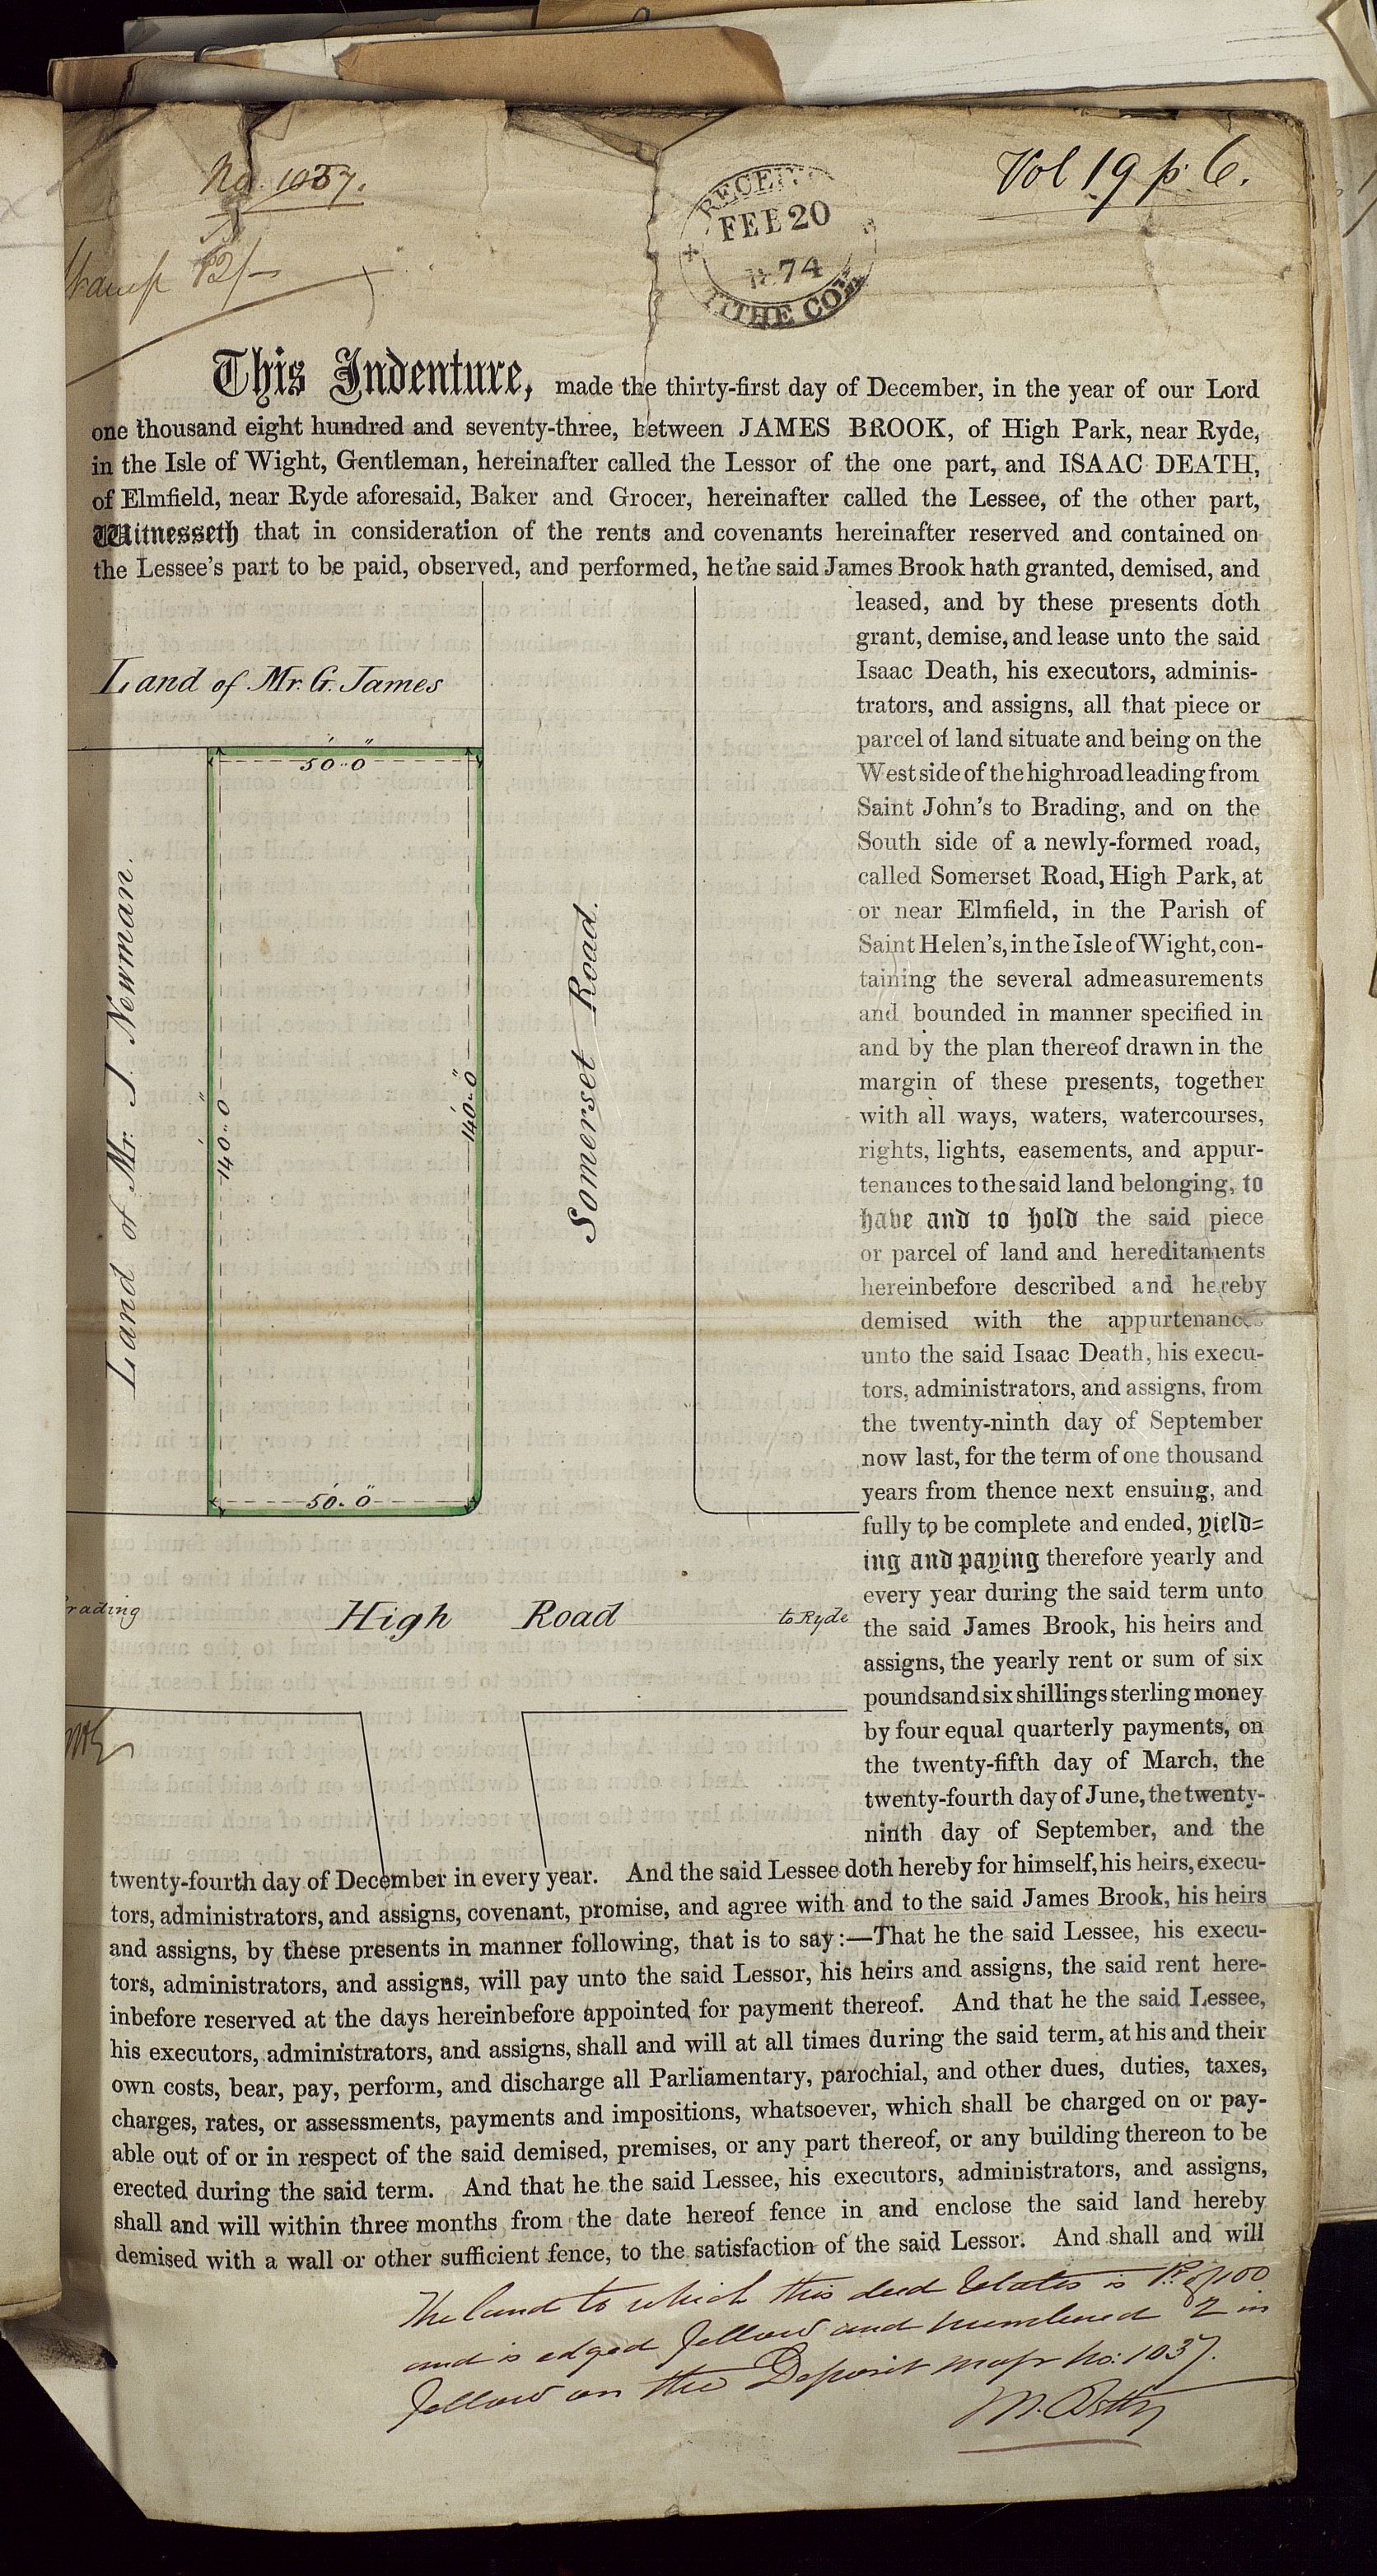 No. 1037.
Vol 19 p. 6.
Stamp 12/-
RECEIV
FEB 20
1874
TITHE COM
This Indenture, made the thirty-first day of December, in the year of our Lord
one thousand eight hundred and seventy-three, between JAMES BROOK, of High Park, near Ryde,
in the Isle of Wight, Gentleman, hereinafter called the Lessor of the one part, and ISAAC DEATH,
of Elmfield, near Ryde aforesaid, Baker and Grocer, hereinafter called the Lessee, of the other part,
Witnesseth that in consideration of the rents and covenants hereinafter reserved and contained on
the Lessee's part to be paid, observed, and performed, he the said James Brook hath granted, demised, and
leased, and by these presents doth
grant, demise, and lease unto the said
Isaac Death, his executors, adminis-
trators, and assigns, all that piece or
parcel of land situate and being on the
West side of the highroad leading from
Saint John's to Brading, and on the
South side of a newly-formed road,
called Somerset Road, High Park, at
or near Elmfield, in the Parish of
Saint Helen's, in the Isle of Wight, con-
taining the several admeasurements
and bounded in manner specified in
and by the plan thereof drawn in the
margin of these presents, together
with all ways, waters, watercourses,
rights, lights, easements, and appur-
tenances to the said land belonging, to
have and to hold the said piece
or parcel of land and hereditaments
hereinbefore described and hereby
demised with the appurtenances
unto the said Isaac Death, his execu-
tors, administrators, and assigns, from
the twenty-ninth day of September
now last, for the term of one thousand
years from thence next ensuing, and
fully to be complete and ended, yield=
ing and paying therefore yearly and
every year during the said term unto
the said James Brook, his heirs and
assigns, the yearly rent or sum of six
pounds and six shillings sterling money
by four equal quarterly payments, on
the twenty-fifth day of March, the
twenty-fourth day of June, the twenty-
ninth day of September, and the
Land of Mr. G. James
50..0
Land of Mr. J. Newman.
140..0
140..0
Somerset Road.
50..0
rading
High Road
to Ryde
twenty-fourth day of December in every year. And the said Lessee doth hereby for himself, his heirs, execu-
tors, administrators, and assigns, covenant, promise, and agree with and to the said James Brook, his heirs
and assigns, by these presents in manner following, that is to say:—That he the said Lessee, his execu-
tors, administrators, and assigns, will pay unto the said Lessor, his heirs and assigns, the said rent here-
inbefore reserved at the days hereinbefore appointed for payment thereof. And that he the said Lessee,
his executors, administrators, and assigns, shall and will at all times during the said term, at his and their
own costs, bear, pay, perform, and discharge all Parliamentary, parochial, and other dues, duties, taxes,
charges, rates, or assessments, payments and impositions, whatsoever, which shall be charged on or pay-
able out of or in respect of the said demised, premises, or any part thereof, or any building thereon to be
erected during the said term. And that he the said Lessee, his executors, administrators, and assigns,
shall and will within three months from the date hereof fence in and enclose the said land hereby
demised with a wall or other sufficient fence, to the satisfaction of the said Lessor. And shall and will
The land to which this deed relates is Pt. of 100
and is edged Yellow and numbered 2 in
Yellow on the Deposit map no: 1037.